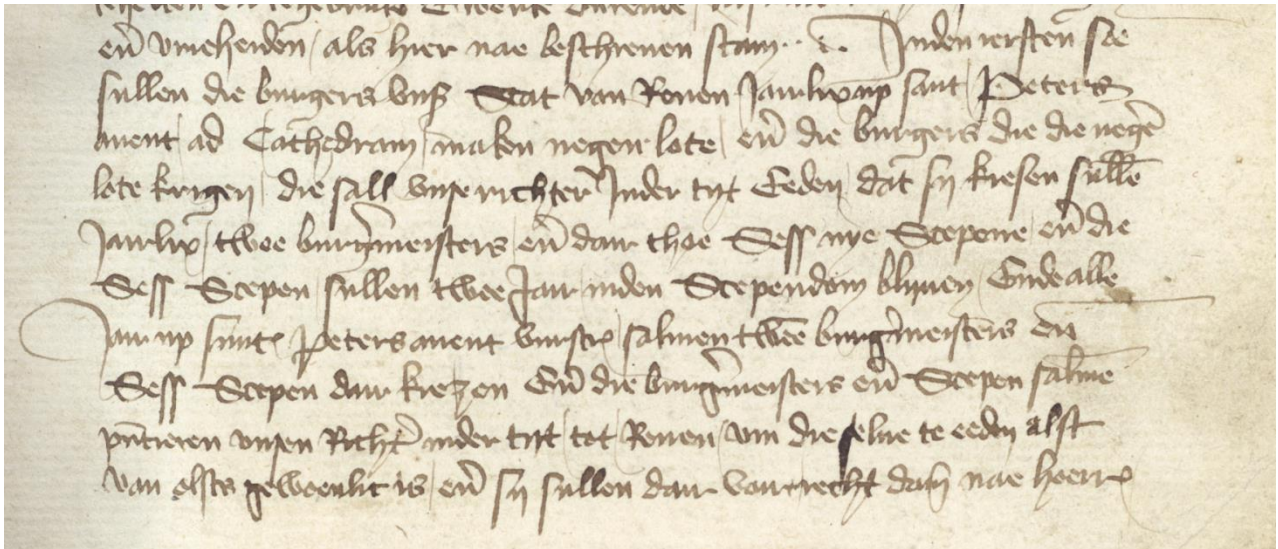 eñ vmeheiden / als hier nae beschreuen staen Inden iersten soe
sullen die burgers vnß Stat van Reuen Jairlix up sant Peters
auent ad Cathedram maken negen lote / eñ die burgers die die negẽ
lote krigen / die sall vnse richter Inder tyt Eeden / dat sy kiesen sullẽ
Jairlix / twee burgermeisters / eñ dair thoe Sess nye Scepene / eñ die
Sess Scepen sullen twee Jair inden Scependom blyuen Ende alle
Jair up sunte Peters auent vurscr salmen twee burgermeisters eñ
Sess Scepen dair kiezen Eñ die burgermeisters eñ Scepen salmẽ
pñtieren vnsen Richter inder tyt / tot Reuen / vm die selue te eeden alst
van alsts gewoenlic is / eñ sy sullen dair vour recht dairñ nae hoerre